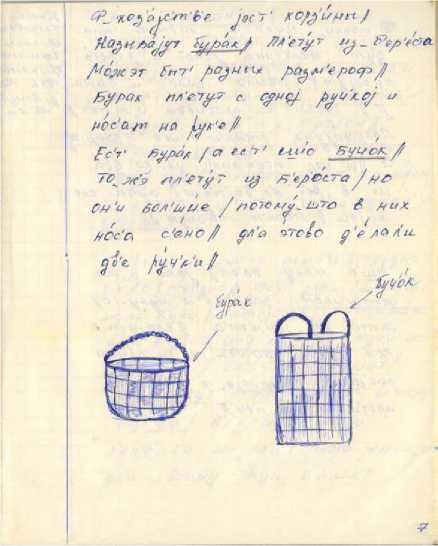 Ф_хоза́јст'ве јест' корзи́ны//
Называ́јут бура́к// Пл'ету́т из_б'ер'о́ста
Мо́жэт быт' разных разм'ероф//
Бурак пл'етут с одној ру́чкој и
но́с'ат на рук'е//
Ес'т' бура́к/а ест' шшо бучо́к//
То_жэ пл'ету́т из б'еро́ста/но
он'и́ бол'шы́е/потому́_што в них
но́с'а с'ено// дл'а э́тово д'е́лал'и
дв'е ру́чк'и//
бура́к
бучо́к
7